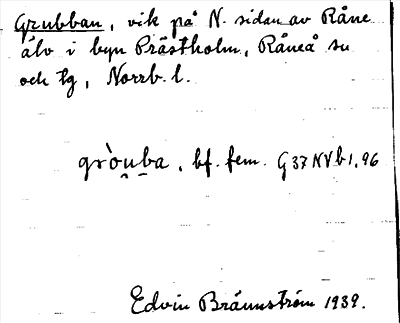 Grubban, vik på N. sidan av Råne
älv i byn Prästholm, Råneå sn
och tg, Norrb. l.
grò̯u̯ba, bf. fem. G 37 NVb 1, 96
Edvin Brännström 1939.